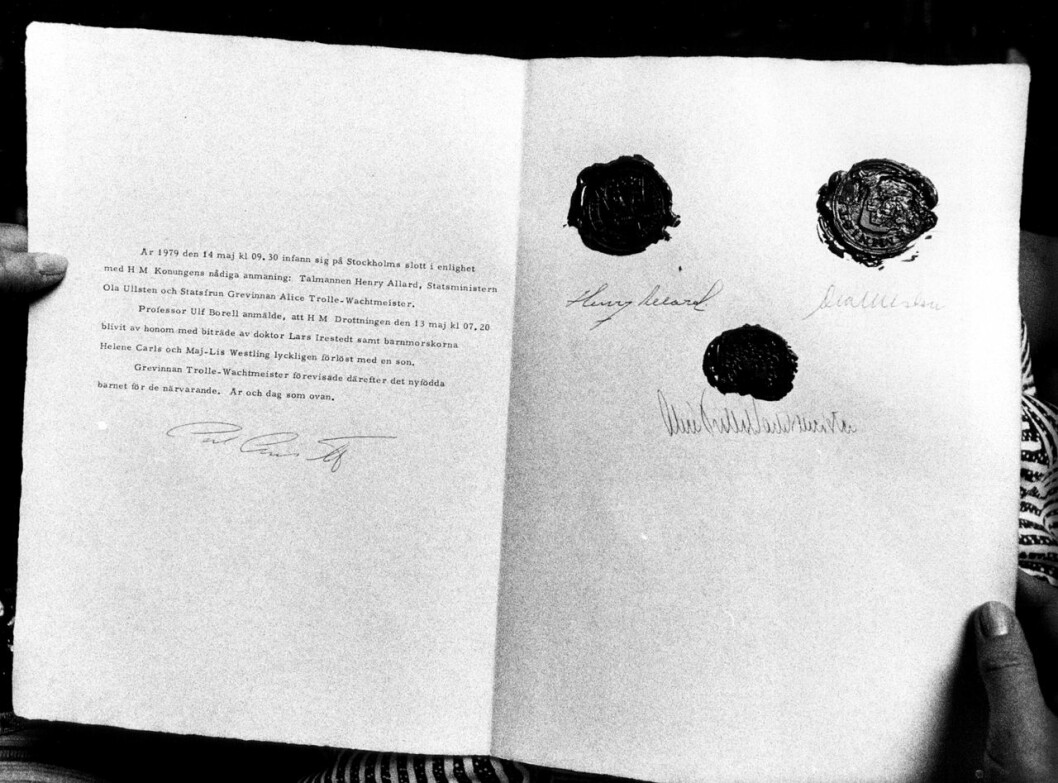 År 1979 den 14 maj kl 09.30 infann sig på Stockholms slott i enlighet
med H M Konungens nådiga anmaning: Talmannen Henry Allard, Statsministern
Ola Ullsten och Statsfrun Grevinnan Alice Trolle-Wachtmeister.
Professor Ulf Borell anmälde, att H M Drottningen den 13 maj kl 07.20
blivit av honom med biträde av doktor Lars Irestedt samt barnmorskorna
Helene Carls och Maj-Lis Westling lyckligen förlöst med en son.
Grevinnan Trolle-Wachtmeister förevisade därefter det nyfödda
barnet för de närvarande. År och dag som ovan.
Henry Allard
Ola Ullsten